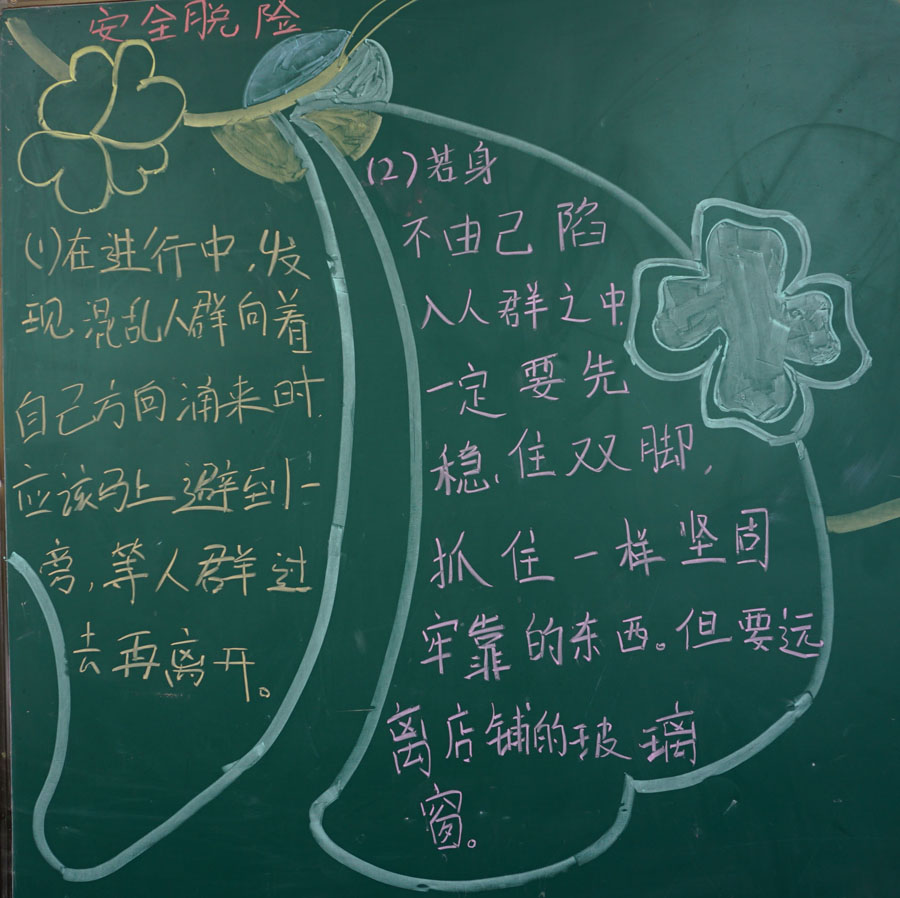 安全脱险
(1)在进行中,发
现混乱人群向着
自己方向涌来时.
应该马上避到一
旁,等人群过
去再离开。
(2)若身
不由己陷
入人群之中,
一定要先
稳住双脚,
抓住一样坚固
牢靠的东西。但要远
离店铺的玻璃
窗。